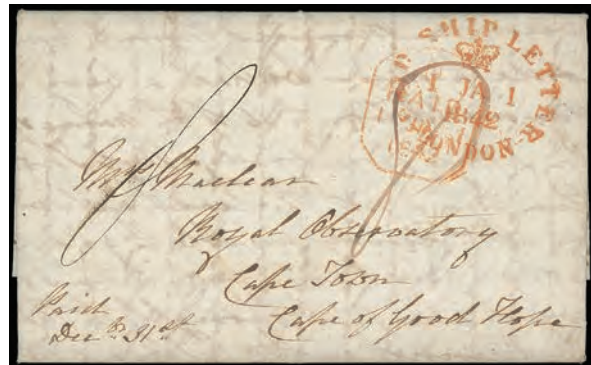 SHIP LETTER
1 JA 1
1842
LONDON
8
Mrs Maclear
Royal Observatory
Cape Town
Cape of Good Hope
Paid
Decbr 31st